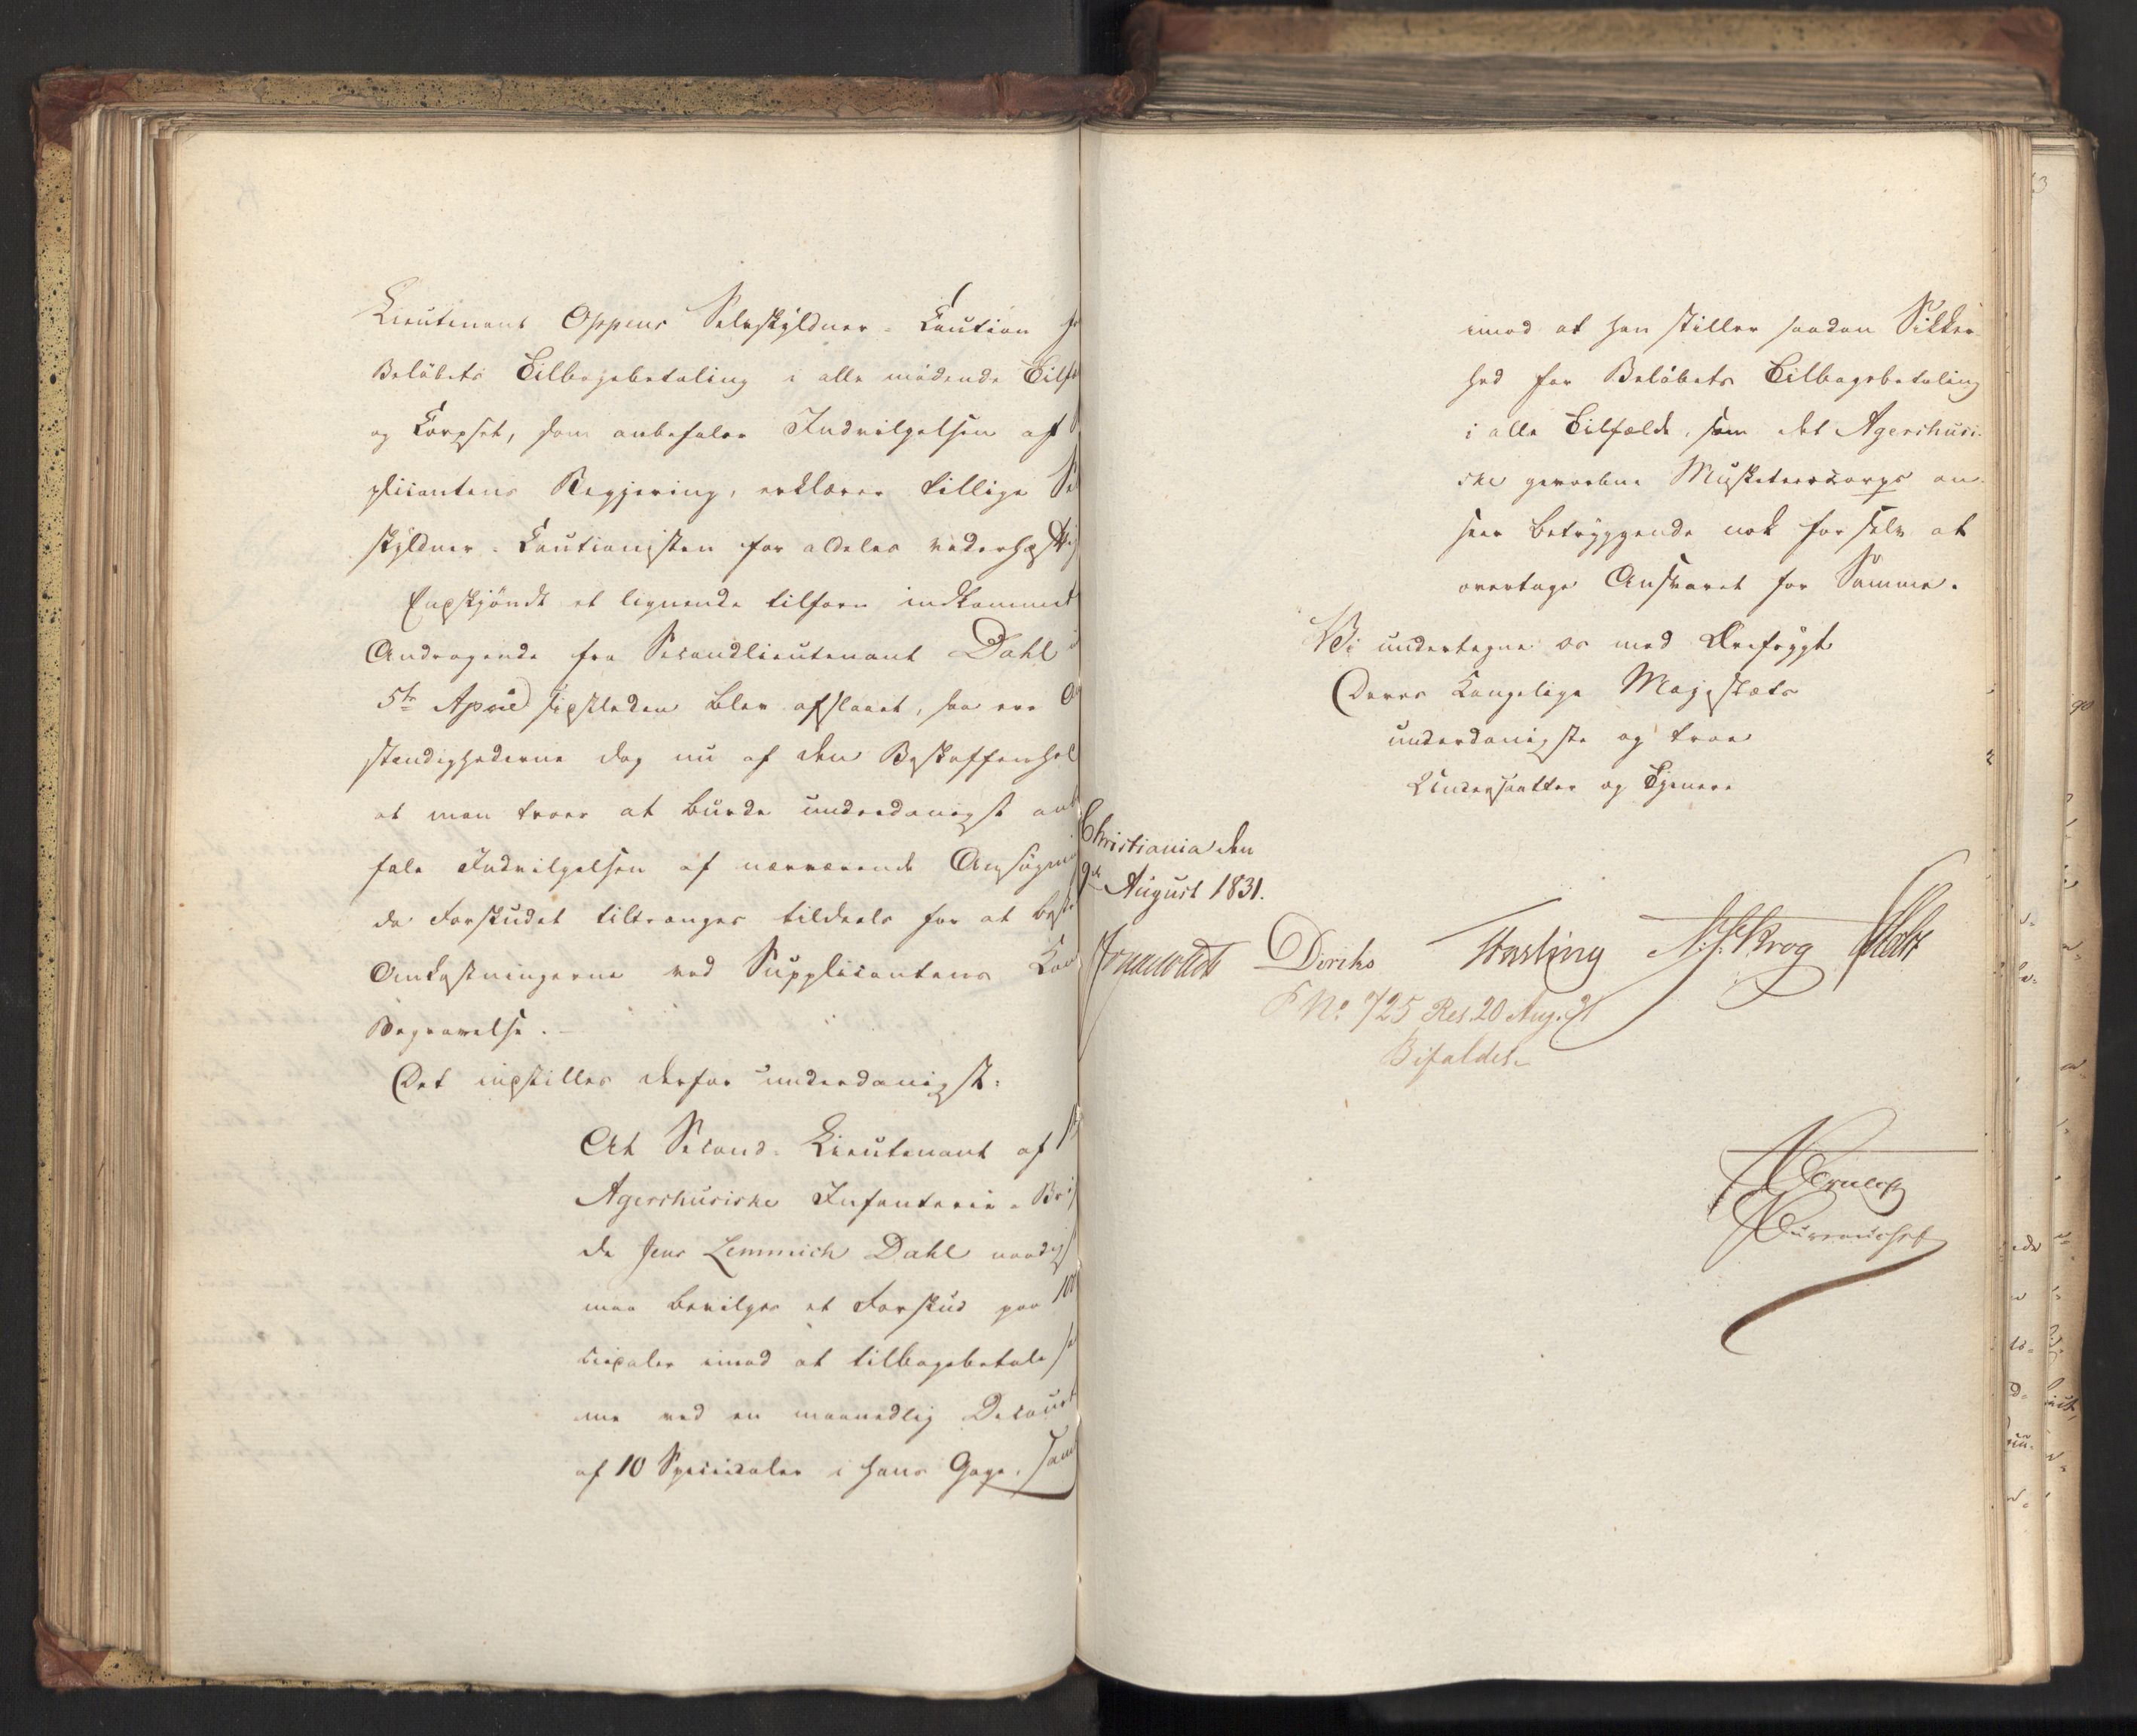 Lieutenant Oppens Selvskÿldner-Caution for
Beløbets Tilbagebetaling i alle mødende Tilfæ
og Corpset, som anbefaler Indvilgelsen af S
plicantens Begjering, erklærer tillige Se
skÿldner-Cautionisten for aldeles vederhæftig
Enskjøndt et lignende tilforn indkommet
Andragende fra Secondlieutenant Dahl
5te April sidstleden blev afslaaet, saa ere O
stændighederne dog nu af den Beskaffenhed
at man troer at burde underdanigst anb
fale Indvilgelsen af nærværende Ansøgni
da Forskudet tiltrænges tildeels for at bestr
Omkostningerne ved Supplicantens Kon
Begravelse.
Det indstilles derfor underdanigst:
At Second-Lieutenant af 1
Agershusiske Infanterie-Bri
de Jens Lemmich Dahl naadigst
maa bevilges et Forskud paa 100
ciedaler imod at tilbagebetale sa
me ved en maanedlig Decourt
af 10 Speciedaler i hans Gage, sam
imod at han stiller saadan Sikker-
hed for Beløbets Tilbagebetaling
i alle Tilfælde, som det Agershusi-
ske gevorbne Musketeercorps an-
seer betrÿggende nok for selv at
overtage Ansvaret for Samme.
Vi undertegne os med Ærefrÿgt
Deres Kongelige Majestæts
underdanigste og troe
Undersaatter og Tjenere
Christiania den
9de August 1831.
Diriks Fasting N. J. Krog Holst
F No. 725 Res. 20 Aug. 31
Bifaldes.
Bureauchef